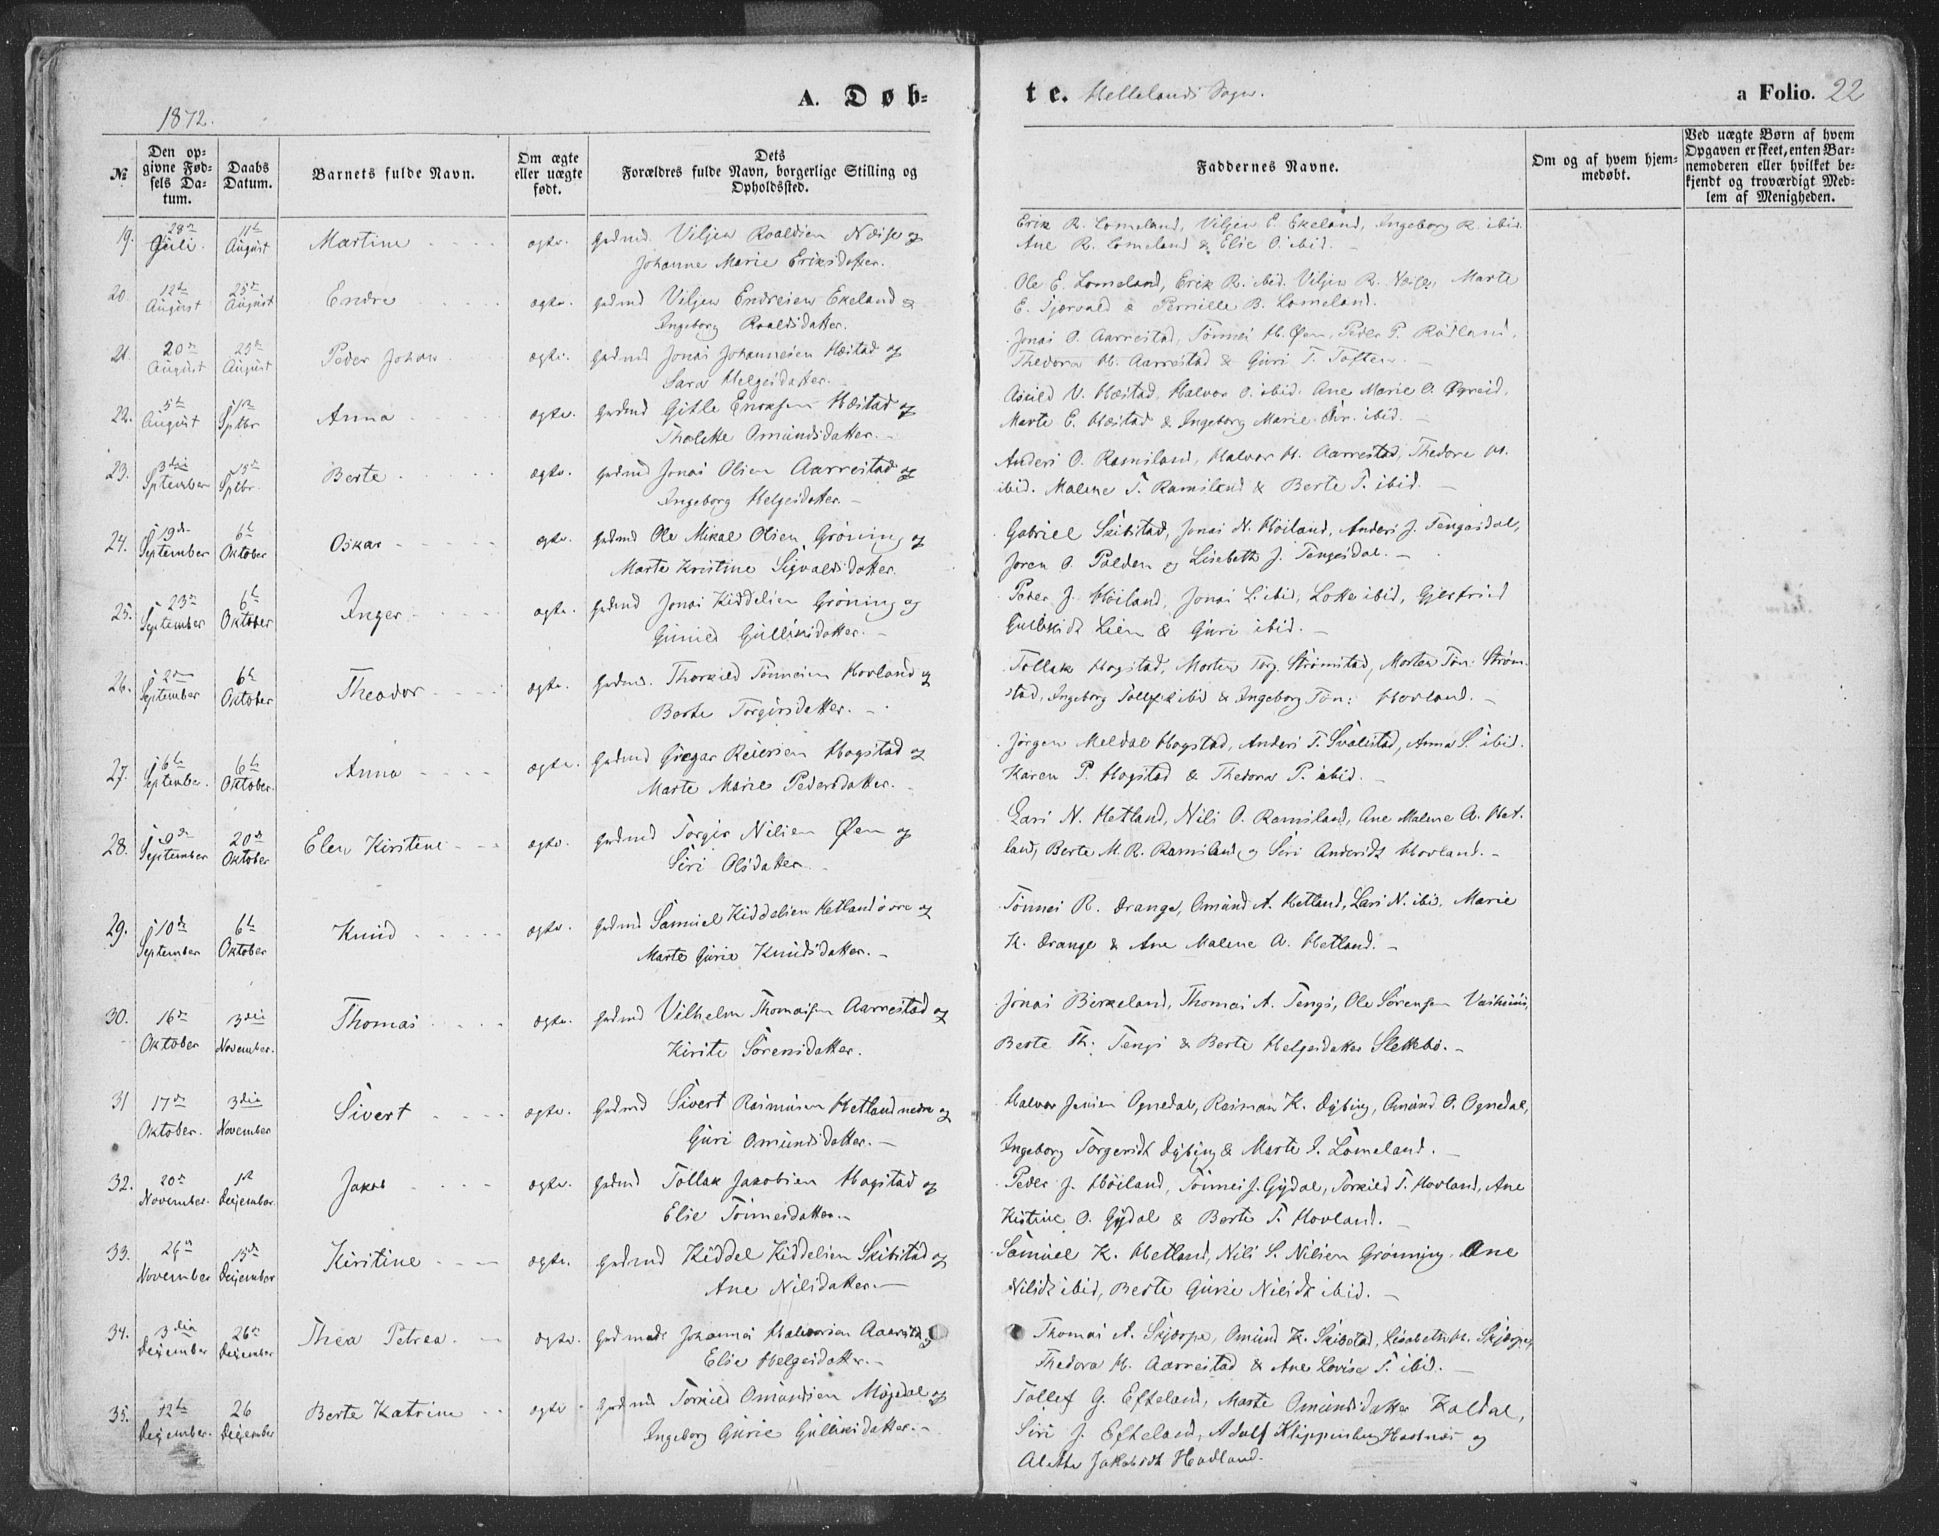 1872.
A. Døb=
te. Hellelands Sogn.
a Folio. 22
№
Den op=
givne Fød=
sels Da=
tum.
Daabs
Datum.
Barnets fulde Navn.
Om ægte
eller uægte
født.
Dets
Forældres fulde Navn, borgerlige Stilling og
Opholdssted.
Faddernes Navne.
Om og af hvem hjem=
medøbt.
Ved uægte Børn af hvem
Opgaven er skeet, enten Bar=
nemoderen eller hvilket be=
kjendt og troværdigt Med=
lem af Menigheden.
19. 28de Juli. 11te August Martine - - - - ægte. Gadmd. Viljen Roaldsen Næise og
Johanne Marie Eriksdatter.
Erik R. Lomeland, Viljen E. Ekeland, Ingeborg R. ibid.
Ane R. Lomeland & Elie O. ibid. -
20. 12te August 25de August Endre - - - ægte. Gadmd Viljen Endresen Ekeland &
Ingeborg Roaldsdatter.
Ole E. Lomeland, Erik R. ibid. Viljen R. Marte
E. & Pernille B. Lomeland.
21. 20de August 25de August Peder Johan ægte. Gadmd Jonas Johannesen Hæstad og
Sara Helgesdatter. -
Jonas O. Aarrestad, Tønnes H. Øen, Peder P. Rødland,
Thedora H. Aarrestad & Guri T. Toften. -
22. 5te August 1ste Sptbr Anna - - - ægte. Gadmd Gitle Eriksen Hæstad og
Tholette Omundsdatter. -
Askild V. Hæstad, Halvor O. ibid. Ane Marie O. Øgreid,
Marte E. Hæstad & Ingeborg Marie Chr. ibid. -
23. 3die September 15de Sptbr. Berte - - - ægte. Gadmd Jonas Olsen Aarrestad og
Ingeborg Helgesdatter. -
Anders O. Ramsland, Halvor H. Aarrestad, Thedore H.
ibid. Malene T. Ramsland & Berte T. ibid. -
24. 19de September 6te Oktober Oskar - - - - ægte. Gadmd Ole Mikal Olsen Grøning og
Marte Kristine Sigvaldsdatter.
Gabriel Skibstad, Jonas N. Høiland, Anders J. Tengesdal,
Joren O. Polden og Lisebeth J. Tengesdal. -
25. 23de September 6te Oktober Inger - - - - ægte. Gadmd Jonas Kiddelsen Grøning og
Gunild Gulliksdatter. -
Peder J. Høiland, Jonas L. ibid, Lotte ibid, Gjertrud
Gulliksdt Lien & Guri ibid. -
26. 2den September 6te Oktober Theodor - - - - ægte. Gadmd. Thorkild Tønnesen Hovland og
Berte Torgersdatter. -
Tollak Hogstad, Morten Torg. Strømstad, Morten Tøn: Strøm-
stad, Ingeborg ibid & Ingeborg Tøn: Hovland. -
27. 16de September. 6te Oktober. Anna - - - - ægte. Gadmd Gregar Reiersen Hogstad og
Marte Marie Pedersdatter. -
Jørgen Meldal Hogstad, Anders T. Svalestad, Anna S. ibid.
Karen P. Hogstad & Thedora P. ibid. -
28. September 20de Oktober Elen Kirstine - - - ægte. Gadmd Torger Nilsen Øen og
Siri Olsdatter. -
Lars N. Hetland, Nils O. Ramsland, Ane Malene A. Het-
land, Berte M. R. Ramsland og Siri Andersdt Hovland. -
29. 10de September 6te Oktober Knud - - - - - ægte. Gadmd Samuel Kiddelsen Hetland øvre og
Marte Gurie Knudsdatter. -
Tønnes R. Drange, Omund A. Hetland, Lars N. ibid. Marie
K. Drange & Ane Malene A. Hetland. -
30. 16de Oktober 3die November. Thomas - - - - ægte. Gadmd Vilhelm Thomassen Aarrestad og
Kirsti Sørensdatter.
Jonas Birkeland, Thomas A. Tengs, Ole Sørensen Vashuus,
Berte Th: Tengs & Berte Helgesdatter Slettebø. -
31 17de Oktober. 3die November Sivert - - - - ægte. Gadmd Sivert Rasmusen Hetland nedre og
Guri Omundsdatter. -
Halvor Jensen Ognedal, Rasman K. Dybing, Omund O. Ognedal,
Ingeborg Torgersdt Dybing & Marte I. Lomeland. -
32. 20de November. 1ste Dezember Jakob - - - - ægte. Gadmd Tollak Jakobsen Hogstad og
Elie Tønnesdatter. -
Peder J. Høiland, Tønnes J. Gydal, Torkild T. Hovland, Ane
Kistine O. Gydal & Berte T. Hovland. -
33. 26de November 15de Dezember Kirstine - - - - ægte. Gadmd Kiddel Kiddelsen Skibstad og
Ane Nilsdatter. -
Samuel K. Hetland, Nils S. Nilsen Grønning. Ane
Nilsdt ibid, Berte Gurie Nilsdt ibid. -
34. 3die Dezember 26de Dezember Thea Petrea. - - ægte. Gadmd Johannes Halvorsen Aarrestad og
Elie Helgesdatter. -
Thomas A. Skjærpe, Omund K. Skibstad, Lisabeth M. Skjærpe,
Thedora H. Aarrestad & Ane Lovise T. ibid. -
35. 12te Dezember. 26 Dezember Berte Katrine - - ægte - Gadmd Torkild Omundsen Mogedal og
Ingeborg Gurie Gulliksdatter. -
Tollef G. Efteland, Marte Omundsdatter Koldal,
Siri J. Efteland, Adolf Klippenberg og
Alette Jakobsdt Hadland.